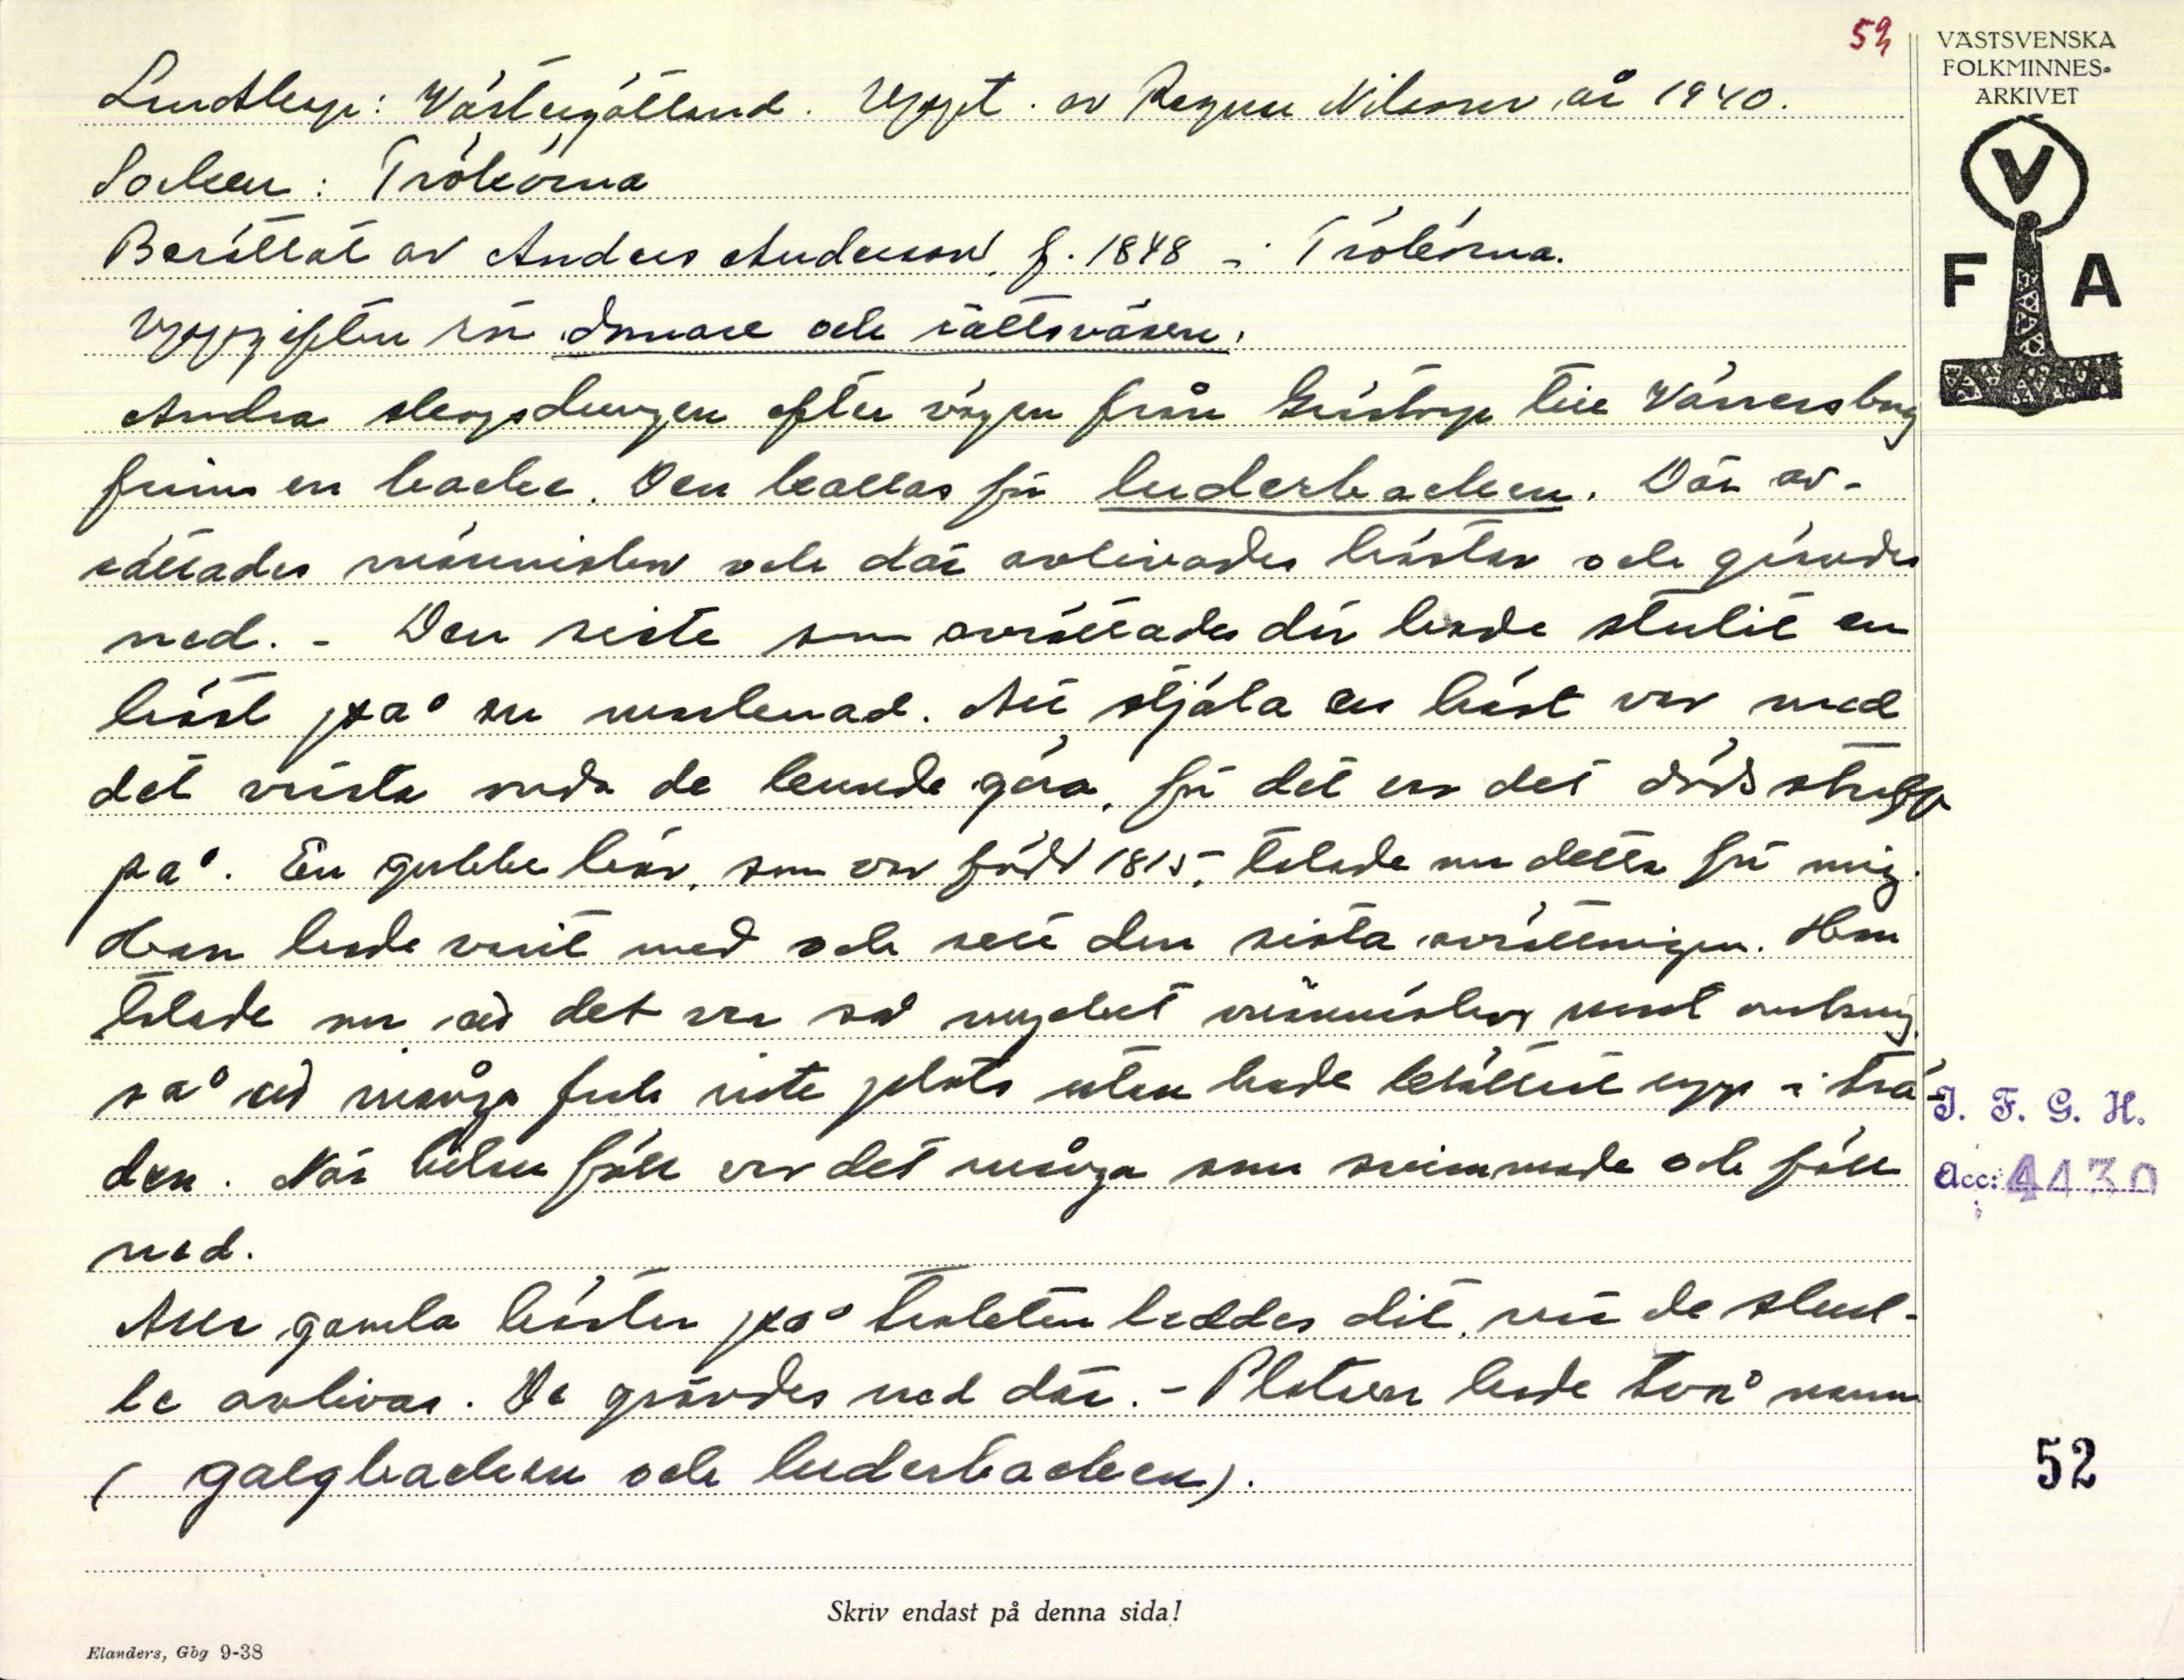 52
VÄSTSVENSKA
FOLKMINNES-
ARKIVET
V
F A
Landskap: Västergötland. Uppt. av Ragnar Nilsson, år 1940.
Socken: Trökörna
Berättat av Anders Andersson, f. 1848 i Trökörna.
Uppgiften rör domare och rättsväsen.
Andra skogsdungen efter vägen från Grästorp till Vänersborg
finns en backe. Den kallas för luderbacken. Där av-
rättades människor och där avlivades hästar och grävdes
ned. - Den siste som avrättades där hade stulit en
häst på en marknad. Att stjäla en häst var med
det värsta onda de kunde göra, för det var det dödsstraff
på. En gubbe här, som var född 1815, talade om detta för mig.
Han hade varit med och sett den sista avrättningen. Han
talade om att det var så mycket människor runt omkring,
så att många fick inte plats utan hade klättrat upp i trä-
den. När bilan föll var det många som svimmade och föll
ned.
Alla gamla hästar på trakten leddes dit, när de skul-
le avlivas. De grävdes ned där. - Platsen hade två namn
( galgbacken och luderbacken).
I. F. G. H.
Acc: 4430
52
Skriv endast på denna sida!
Elanders, Gbg 9-38